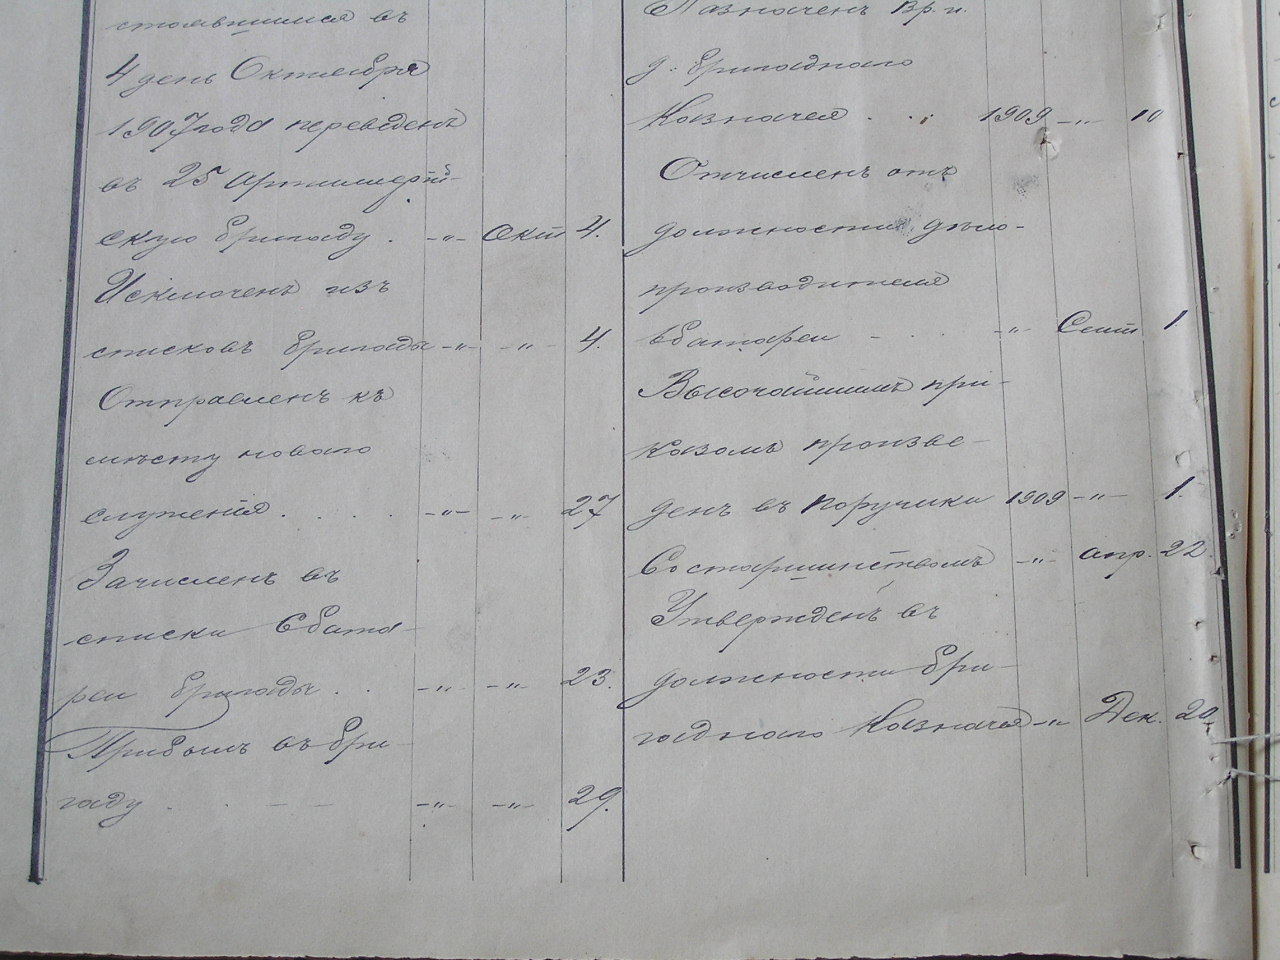 стоявшимся въ
4 день Октября
1907 года переведенъ
въ 25 Артиллерій-
скую бригаду . -„- Окт 4.
Исключенъ изъ
списковъ бригады -„- -„- 4.
Отправленъ къ
мѣсту новаго
служенія . . . . -„- -„- 27
Зачисленъ въ
списки 6 бата-
реи бригады . . -„- -„- 23.
Прибылъ въ бри-
гаду . . - - -„- -„- 29.
Назначенъ Вр. и.
д. бригаднаго
Казначея . . . 1909 -„- 10
Отчисленъ отъ
должности дѣло-
производителя
6 батареи - . . -„- Сент 1.
Высочайшимъ при-
казомъ произве-
денъ въ поручики 1909 -„- 1.
Со старшинствомъ -„- апр. 22.
Утвержденъ въ
должности бри-
гаднаго Казначея -„- Дек. 20.